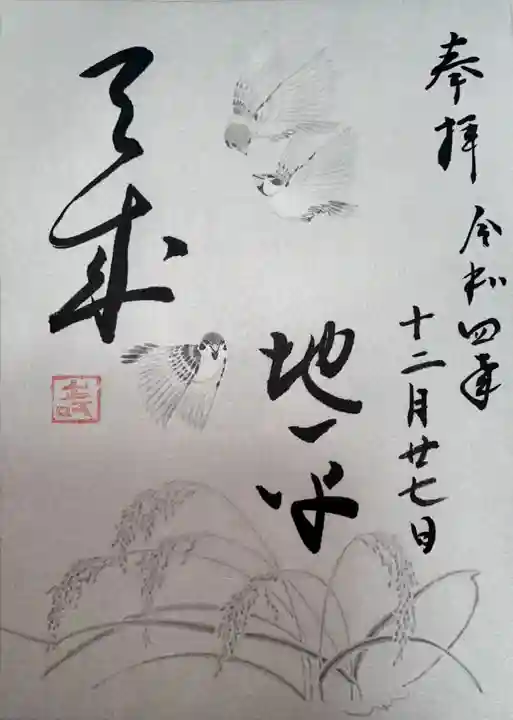 奉拝
令和四年
十二月廿七日
地平
天成